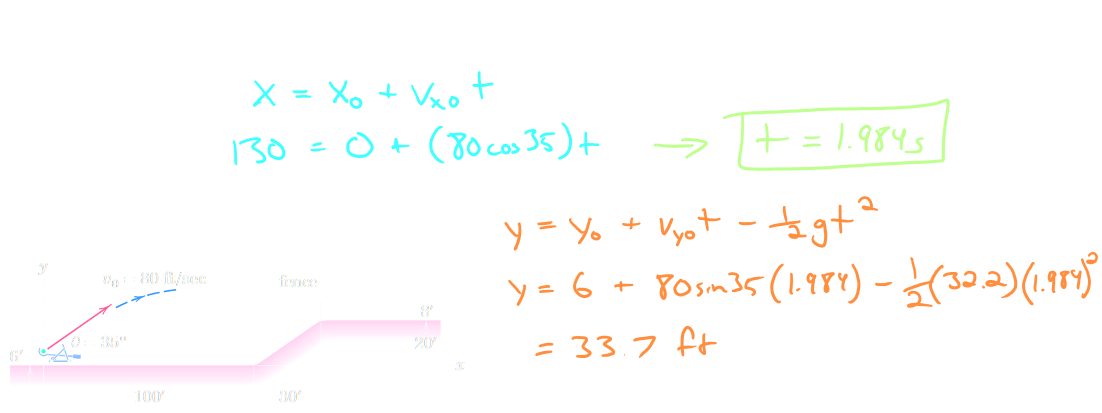 x = x₀ + vₓ₀ t
130 = 0 + (80 cos 35) t → t = 1.984 s
y = y₀ + v_y₀ t - 1/2 g t²
y = 6 + 80 sin 35 (1.984) - 1/2 (32.2)(1.984)²
= 33.7 ft
y
v₀ = 80 ft/sec
fence
8'
θ = 35°
20'
6'
x
100'
30'